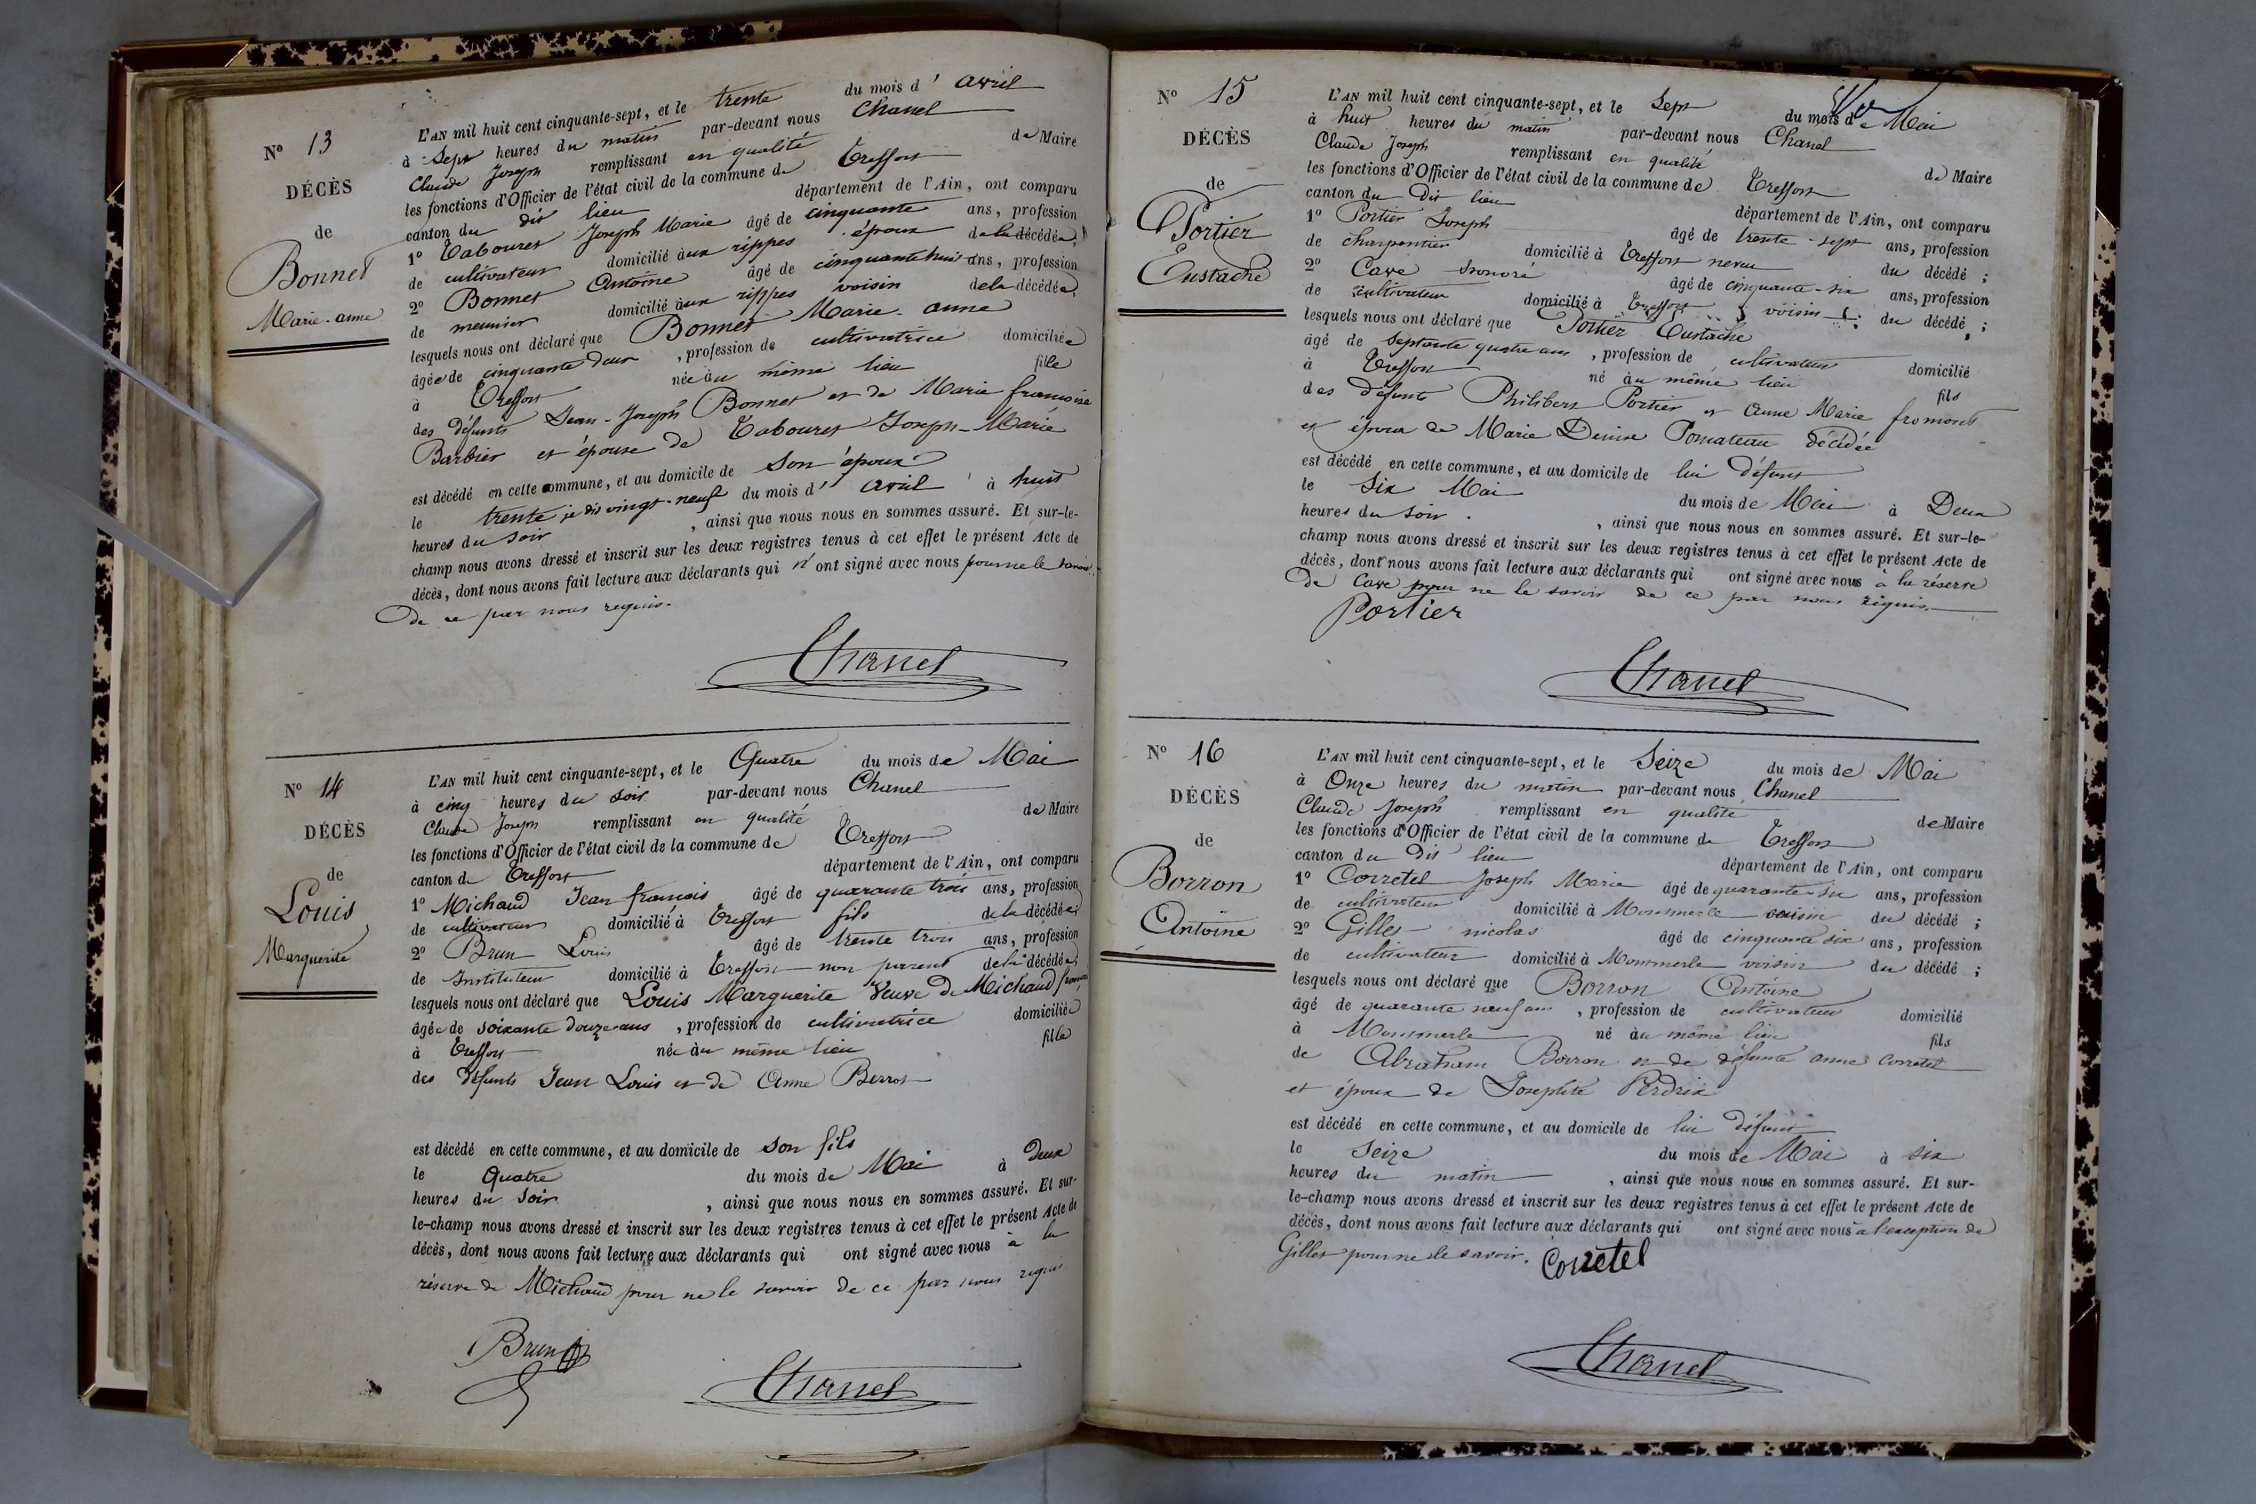 N° 13
DÉCÈS
de
Bonnet
Marie-anne
L'AN mil huit cent cinquante-sept, et le trente du mois d' avril
à Sept heures du matin par-devant nous Chanel
Claude Joseph remplissant en qualité de Maire
les fonctions d'Officier de l'état civil de la commune de Treffort
canton du dit lieu département de l'Ain, ont comparu
1° Tabouret Joseph Marie âgé de cinquante ans, profession
de cultivateur domicilié aux rippes époux de la décédée;
2° Bonnet Antoine âgé de cinquante huit ans, profession
de meunier domicilié aux rippes voisin de la décédée;
lesquels nous ont déclaré que Bonnet Marie-anne
âgée de cinquante deux, profession de cultivatrice domiciliée
à Treffort née au même lieu fille
des défunts Jean-Joseph Bonnet et de Marie françoise
Barbier et épouse de Tabouret Joseph-Marie
est décédé en cette commune, et au domicile de son époux
le trente je dis vingt-neuf du mois d' avril à huit
heures du soir, ainsi que nous nous en sommes assuré. Et sur-le-
champ nous avons dressé et inscrit sur les deux registres tenus à cet effet le présent Acte de
décès, dont nous avons fait lecture aux déclarants qui n'ont signé avec nous pour ne le savoir
de ce par nous requis.
Chanel
N° 14
DÉCÈS
de
Louis
Marguerite
L'AN mil huit cent cinquante-sept, et le Quatre du mois de Mai
à cinq heures du soir par-devant nous Chanel
Claude Joseph remplissant en qualité de Maire
les fonctions d'Officier de l'état civil de la commune de Treffort
canton de Treffort département de l'Ain, ont comparu
1° Michaud Jean françois âgé de quarante trois ans, profession
de cultivateur domicilié à Treffort fils de la décédée;
2° Brun Louis âgé de trente trois ans, profession
de Instituteur domicilié à Treffort non parent de la décédée;
lesquels nous ont déclaré que Louis Marguerite veuve de Michaud
âgée de soixante douze ans, profession de cultivatrice domiciliée
à Treffort née au même lieu fille
des défunts Jean Louis et de Anne Berrot
est décédé en cette commune, et au domicile de son fils
le Quatre du mois de Mai à Deux
heures du soir, ainsi que nous nous en sommes assuré. Et sur-
le-champ nous avons dressé et inscrit sur les deux registres tenus à cet effet le présent Acte de
décès, dont nous avons fait lecture aux déclarants qui ont signé avec nous à la
réserve de Michaud pour ne le savoir de ce par nous requis
Brun
Chanel
N° 15
DÉCÈS
de
Portier
Eustache
L'AN mil huit cent cinquante-sept, et le Sept du mois de Mai
à huit heures du matin par-devant nous Chanel
Claude Joseph remplissant en qualité de Maire
les fonctions d'Officier de l'état civil de la commune de Treffort
canton du dit lieu département de l'Ain, ont comparu
1° Portier Joseph âgé de trente-sept ans, profession
de charpentier domicilié à Treffort neveu du décédé;
2° Cave honoré âgé de cinquante-six ans, profession
de cultivateur domicilié à Treffort voisin du décédé;
lesquels nous ont déclaré que Portier Eustache
âgé de septante quatre ans, profession de cultivateur domicilié
à Treffort né au même lieu fils
des défunts Philibert Portier et Anne Marie fromont
et époux de Marie Denise Pomateau décédée
est décédé en cette commune, et au domicile de lui défunt
le Six Mai du mois de Mai à Deux
heures du soir., ainsi que nous nous en sommes assuré. Et sur-le-
champ nous avons dressé et inscrit sur les deux registres tenus à cet effet le présent Acte de
décès, dont nous avons fait lecture aux déclarants qui ont signé avec nous à la réserve
de Cave pour ne le savoir de ce par nous requis.
Portier
Chanel
N° 16
DÉCÈS
de
Borron
Antoine
L'AN mil huit cent cinquante-sept, et le Seize du mois de Mai
à Onze heures du matin par-devant nous Chanel
Claude Joseph remplissant en qualité de Maire
les fonctions d'Officier de l'état civil de la commune de Treffort
canton du dit lieu département de l'Ain, ont comparu
1° Corretel Joseph Marie âgé de quarante-six ans, profession
de cultivateur domicilié à Montmerle voisin du décédé;
2° Gillet nicolas âgé de cinquante six ans, profession
de cultivateur domicilié à Montmerle voisin du décédé;
lesquels nous ont déclaré que Borron Antoine
âgé de quarante neuf ans, profession de cultivateur domicilié
à Montmerle né au même lieu fils
de Abraham Borron et de défunte anne Corretel
et époux de Josephte Perdrix
est décédé en cette commune, et au domicile de lui défunt
le Seize du mois de Mai à six
heures du matin, ainsi que nous nous en sommes assuré. Et sur-
le-champ nous avons dressé et inscrit sur les deux registres tenus à cet effet le présent Acte de
décès, dont nous avons fait lecture aux déclarants qui ont signé avec nous à l'exception de
Gillet pour ne le savoir. Corretel
Chanel